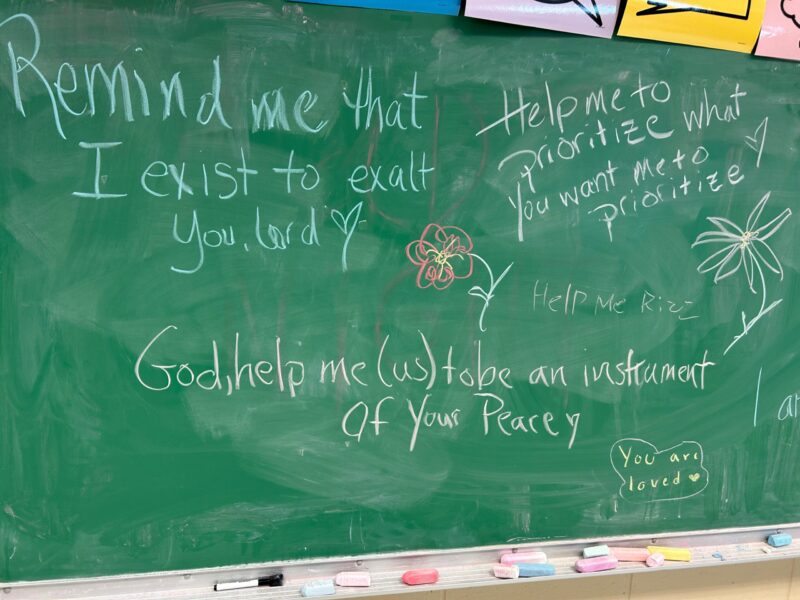 Remind me that
I exist to exalt
You, Lord
Help me to
prioritize what
you want me to
prioritize
Help Me Rizz
God, help me (us) to be an instrument
Of Your Peace
I
You are
loved